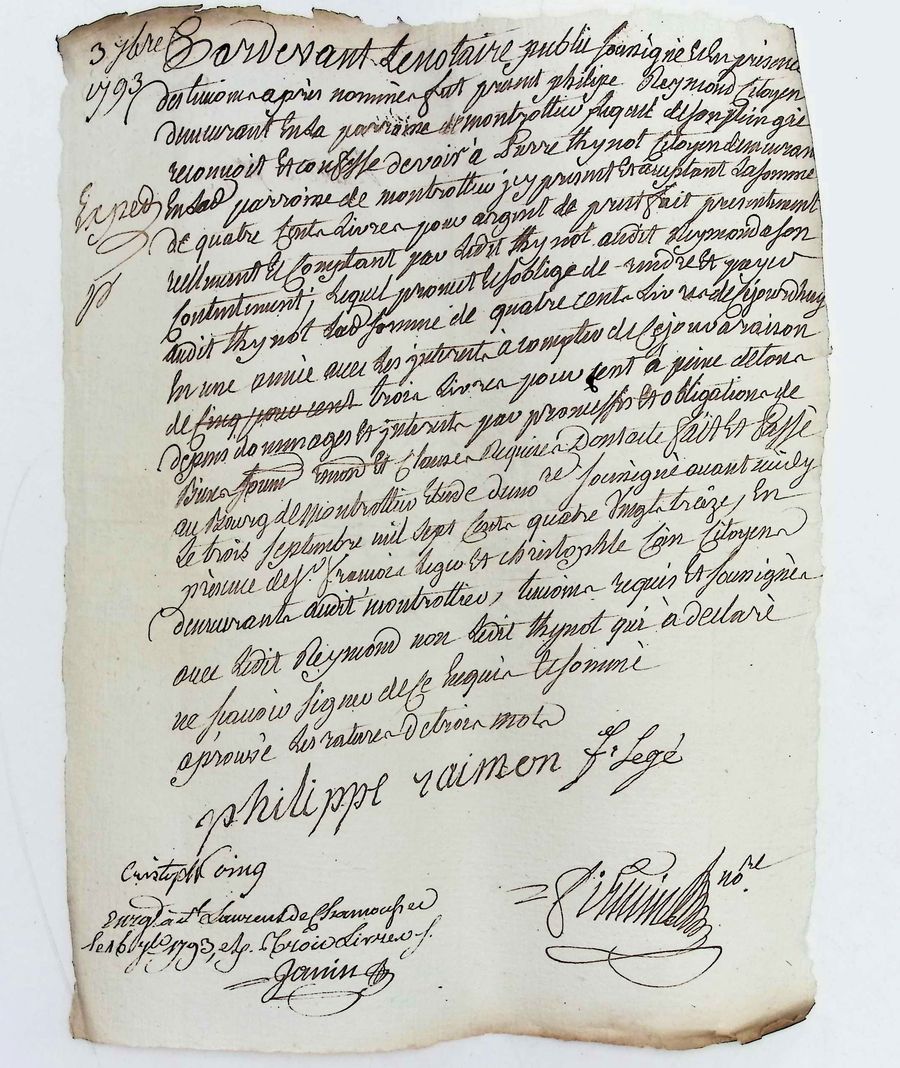 3 7bre
1793
Pardevant Le notaire public soussigné et En présence
des temoins après nommés fut présent philipe Reymond Citoyen
demeurant En La parroisse de montrottier Lequel de son plein gré
reconnoit Et confesse devoir à Pierre thynot Citoyen demeurant
Exped
En Lad parroisse de montrottier icy présent Et acceptant La somme
de quatre Cents Livres pour argent de prest fait présentement
réellement Et Comptant par Ledit thynot audit Reymond a son
Contentement; Lequel promet Et s'oblige de rendre Et payer
audit thynot Lad somme de quatre cents Livres de Cejourdhuy
En une année avec Les interets à compter de Ce jour à raison
de cinq pour cent trois Livres pour cent à peine de tous
depens dommages Et interets par promesses Et obligations de
Biens Et Clauses Requises Dont acte fait Et Passé
au Bourg de montrottier Etude du nore soussigné avant midy
Le trois septembre mil sept Cents quatre vingts treize, En
présence de Sr. francois Legeo Et christophle Coin Citoyens
demeurants audit montrottier, temoins requis Et soussignés
avec Ledit Reymond non Ledit thynot qui à declaré
ne scavoir signer de Ce Enquis Et sommé
aprouvé Les ratures de trois mots
philippe raimon fr Legé
Cristoph Coing
nore
Enregt. à st. Laurent de Chamousset
le 16 7bre 1793, trois Livres
Janin